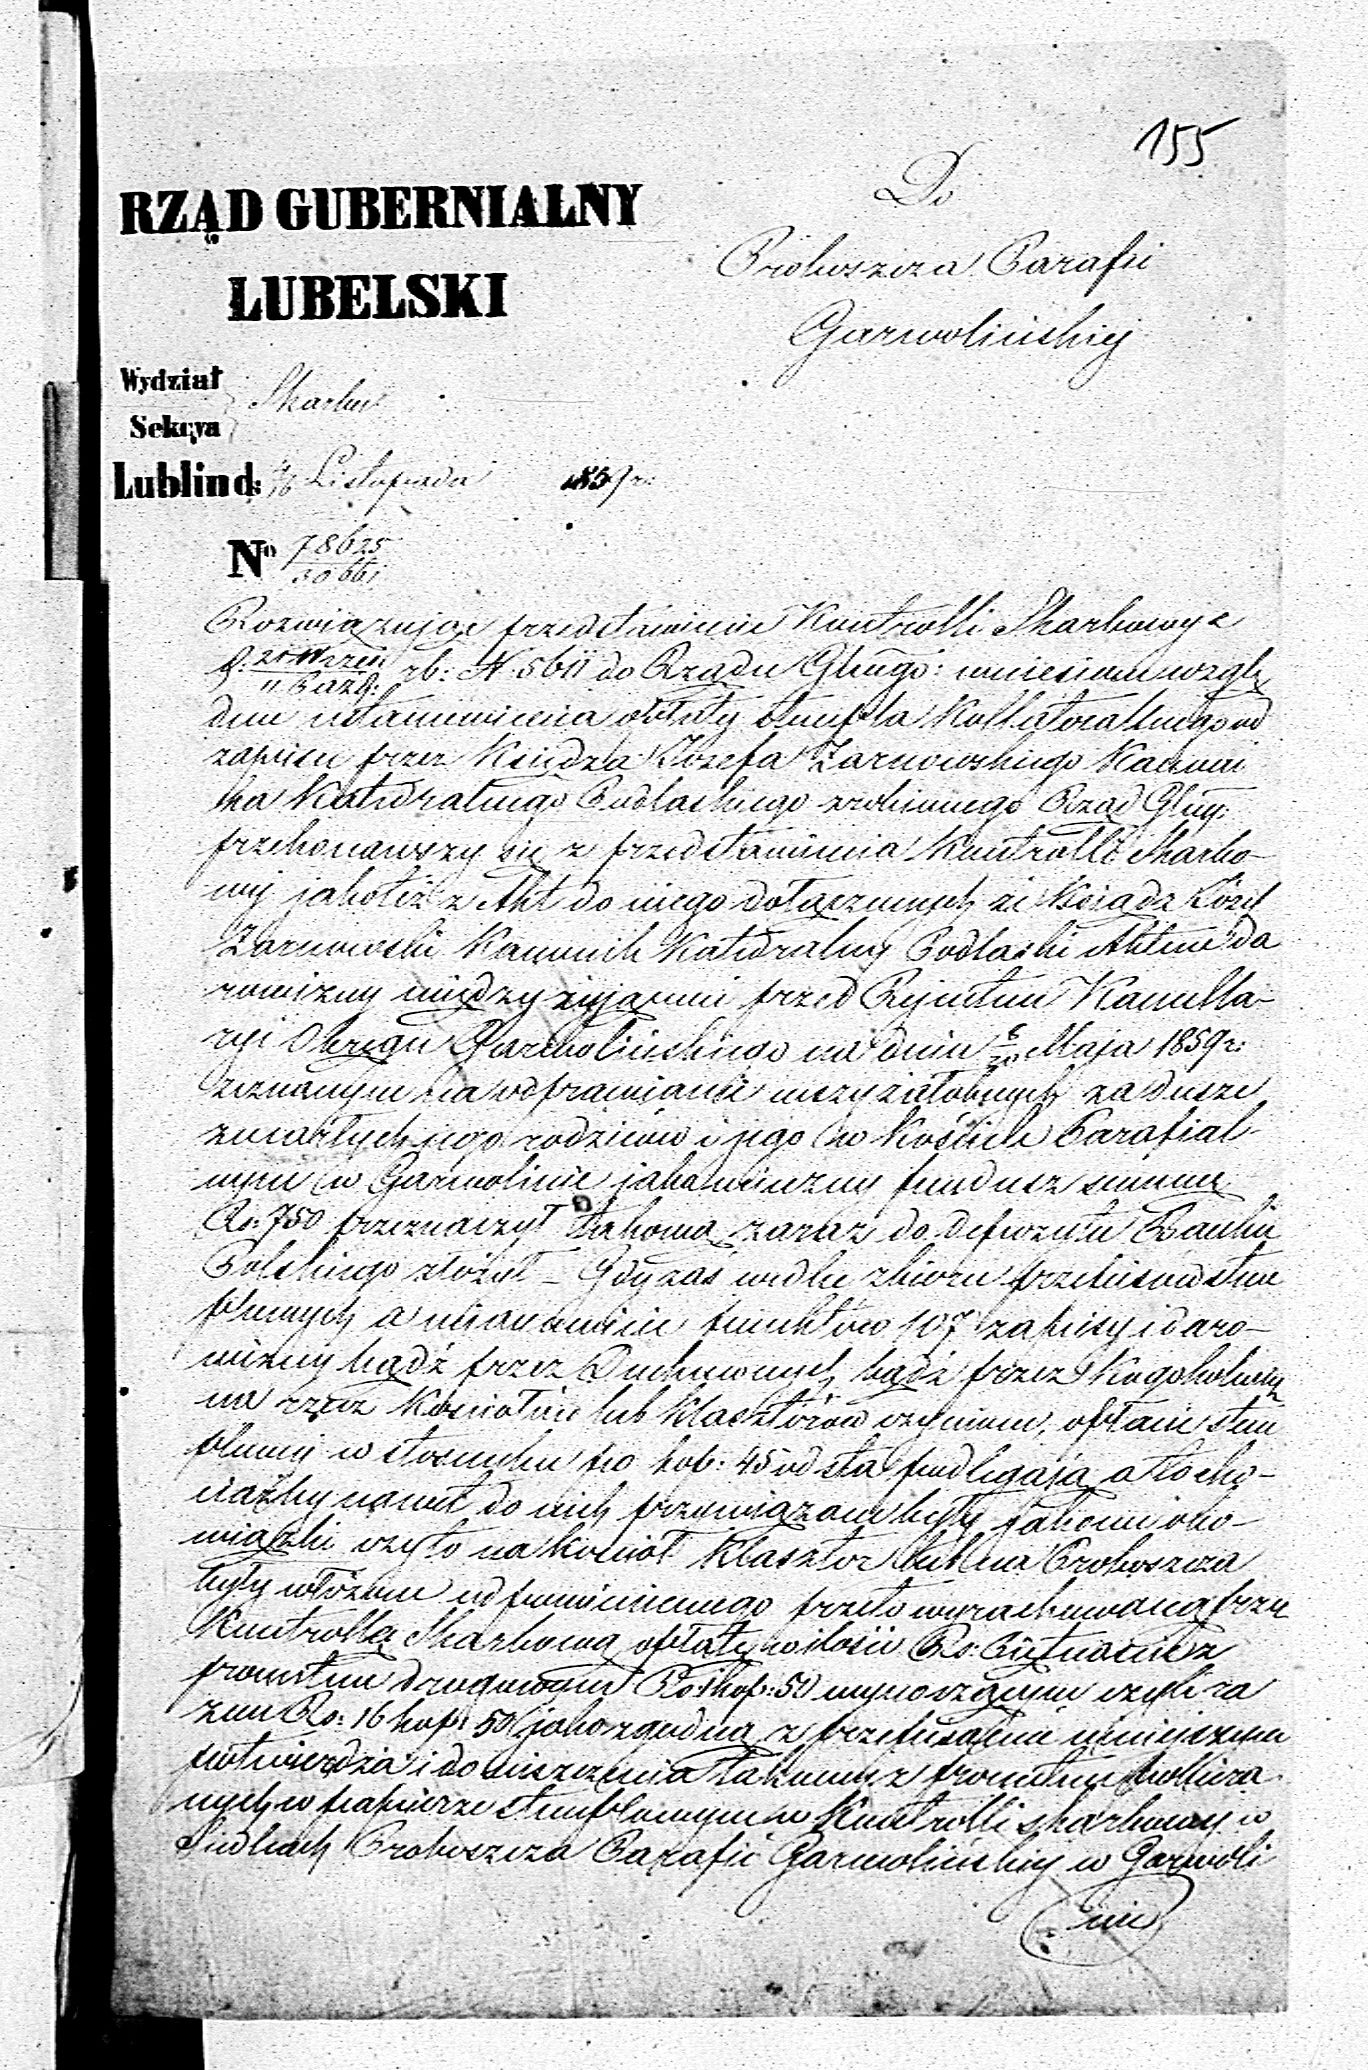 155
RZĄD GUBERNIALNY
LUBELSKI
Do
Proboszcza Parafii
Garwolińskiej
Wydział Skarbu
Sekcya
Lublin d: 4/16 Listopada 1859 r:
No 78625/30661
Rozwiązując przedstawienie Kontrolli Skarbowy z
d. 29 Wrześ/11 Paźd: rb: N 5611 do Rządu Glnego: wniesione wzglę
dem ustanowienia opłaty stempla Kollateralnego od
zapisu przez Księdza Józefa Żarnowskiego Kanoni
ka Katedralnego Podlaskiego zrobionego Rząd Glny:
przekonawszy się z przedstawienia Kontrolli Skarbo-
wej jakoteż z Akt do niego dołączonych że Ksiądz Józef
Żarnowski Kanonik Katedralny Podlaski Aktem da
rowizny między żyjącemi przed Rejentem Kancella-
ryi Okręgu Garwolińskiego na dniu 8/20 Maja 1859 r:
zeznanym na odprawianie mszy żałobnych za dusze
zmarłych jego rodziców i jego w Kościele Parafial-
nym w Garwolinie jako wieczny fundusz summę
Rs: 750 przeznaczył takową zaraz do depozytu Banku
Polskiego złożył – Gdy zaś wedle zbioru przepisów stem
plowych a mianowicie punktów 107 zapisy i daro-
wizny bądź przez Duchownych bądź przez Kogokolwiek
na rzecz Kościołów lub Klasztorów czynione, opłacie stem
plowej w stosunku po kop: 45 od sta podlegają, a to cho-
ciażby nawet do nich przywiązane były jakowe obo-
wiązki czyto na kościół Klasztor lub na Proboszcza
były włożone odpowiedniego przeto wyrachowaną przez
Kontrollę Skarbową opłatę w ilości Rs: Piętnaście z
procentem drugowym Rs: 1 kop: 50 wynoszącym czyli ra
zem Rs: 16 kop: 50 jako zgodną z przepisami niniejszem
potwierdza i do uiszczenia takowej z procentem policza
nych w papierze stemplowym w Kontrolli skarbowey w
Siedlcach Proboszcza Parafii Garwolińskiej w Garwoli
nie